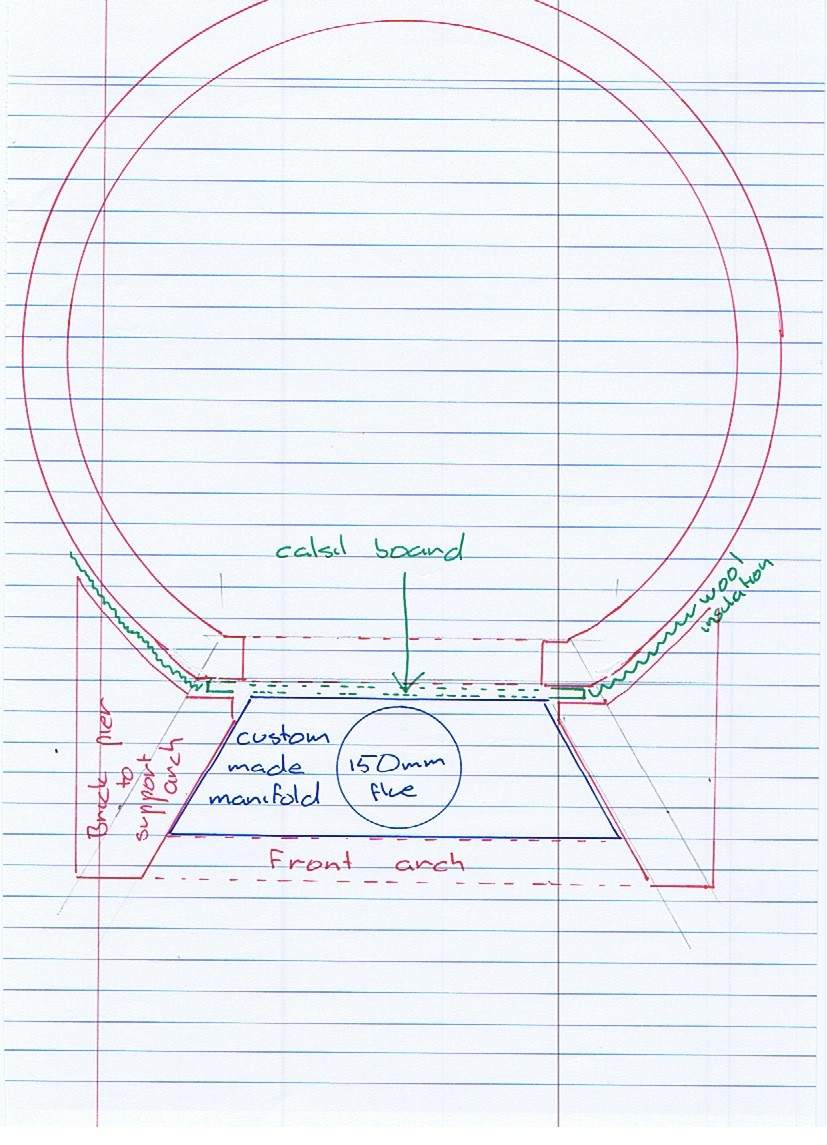 calsil board
wool
insulation
custom
made
manifold
150mm
flue
Brick pier
to
support
arch
Front arch